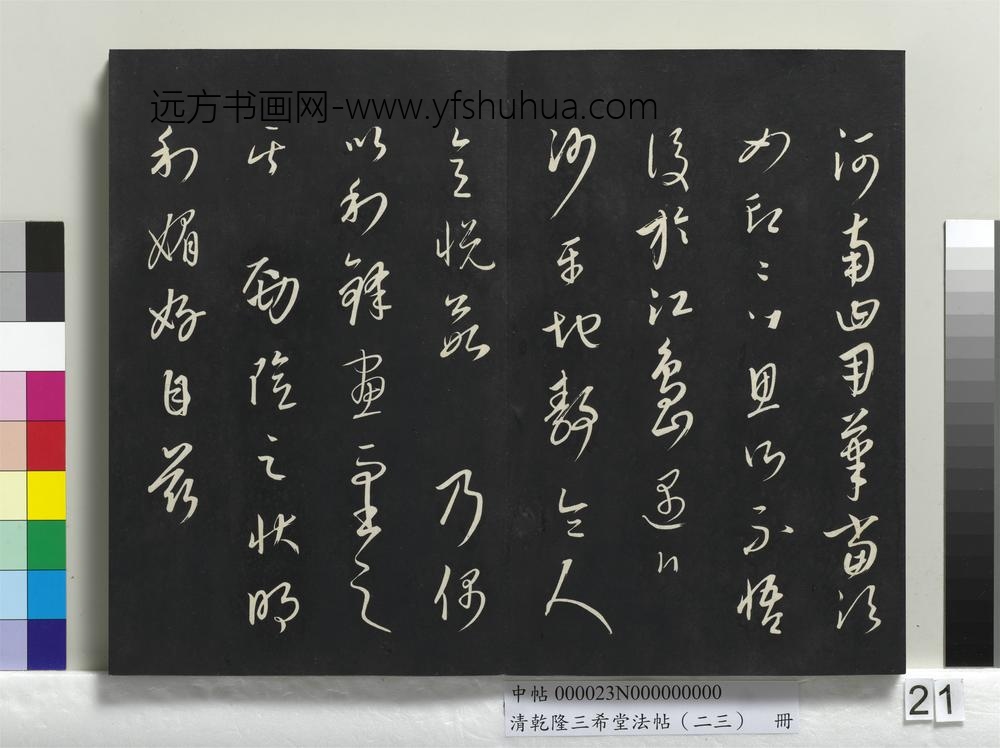 河南曰用筆當須
如印〻思所不悟
後於江島遇
沙平地靜令人
意悦欲乃偶
以利鋒畫而書之
其勁險之狀明
利媚好自兹
远方书画网-www.yfshuhua.com
中帖 000023N000000000
清乾隆三希堂法帖（二三） 冊
21